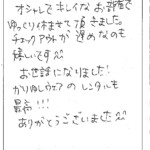 オシャレで キレイな お部屋で
ゆっくり休ませて 頂きました。
チェックアウトが 遅めなのも
嬉しいです^^
お世話になりました!
かりゆしウェアの レンタルも
最高!!!
ありがとうございました^^